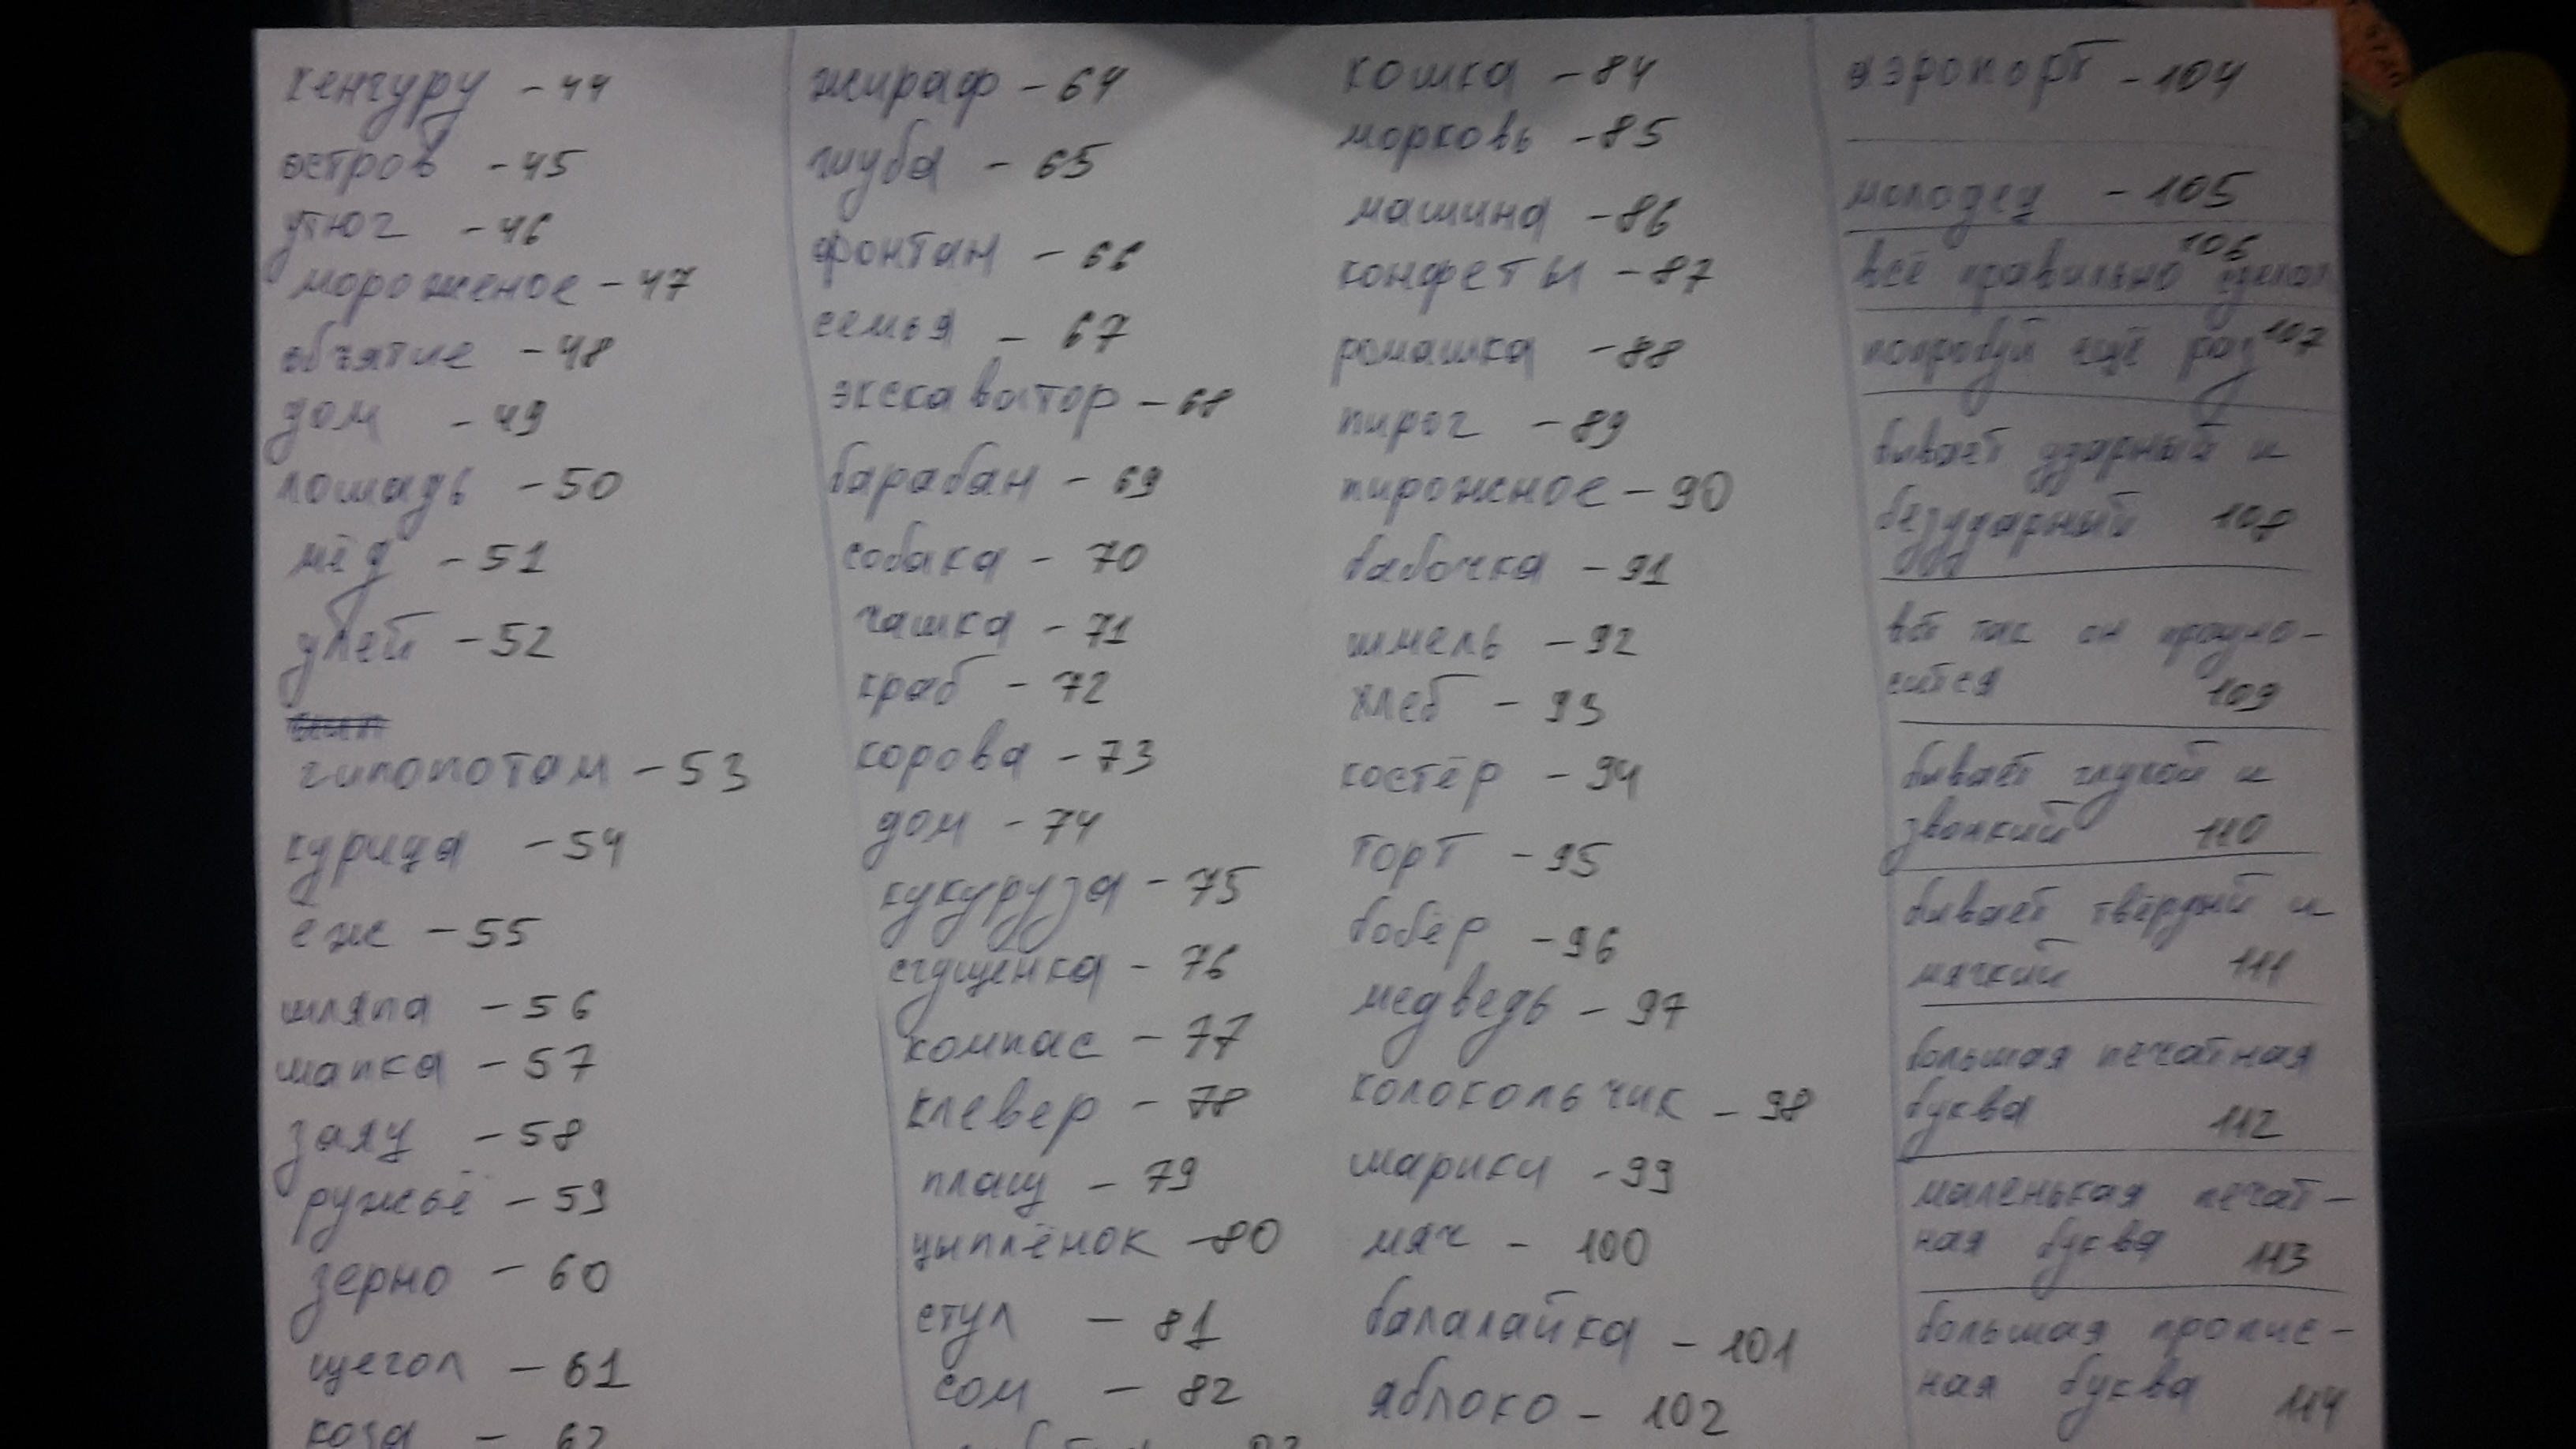 кенгуру - 44
ветров - 45
утюг - 46
мороженое - 47
объятие - 48
дом - 49
лошадь - 50
мёд - 51
улей - 52
гиппопотам - 53
курица - 54
еж - 55
шляпа - 56
шапка - 57
заяц - 58
ружьё - 59
зерно - 60
щегол - 61
- 62
жираф - 64
шуба - 65
фонтан - 66
семья - 67
экскаватор - 68
барабан - 69
собака - 70
чашка - 71
краб - 72
корова - 73
дом - 74
кукуруза - 75
сгущенка - 76
компас - 77
клевер - 78
плащ - 79
цыплёнок - 80
стул - 81
сом - 82
кошка - 84
морковь - 85
машина - 86
конфеты - 87
ромашка - 88
пирог - 89
пирожное - 90
бабочка - 91
шмель - 92
хлеб - 93
костёр - 94
торт - 95
бобёр - 96
медведь - 97
колокольчик - 98
шарики - 99
мяч - 100
балалайка - 101
яблоко - 102
аэропорт - 104
- 105
всё правильно
106
107
бывает ударный и
безударный
108
109
бывает глухой и
звонкий
110
бывает твёрдый и
мягкий
111
большая печатная
буква
112
маленькая печат-
ная буква 113
большая пропис-
ная буква 114